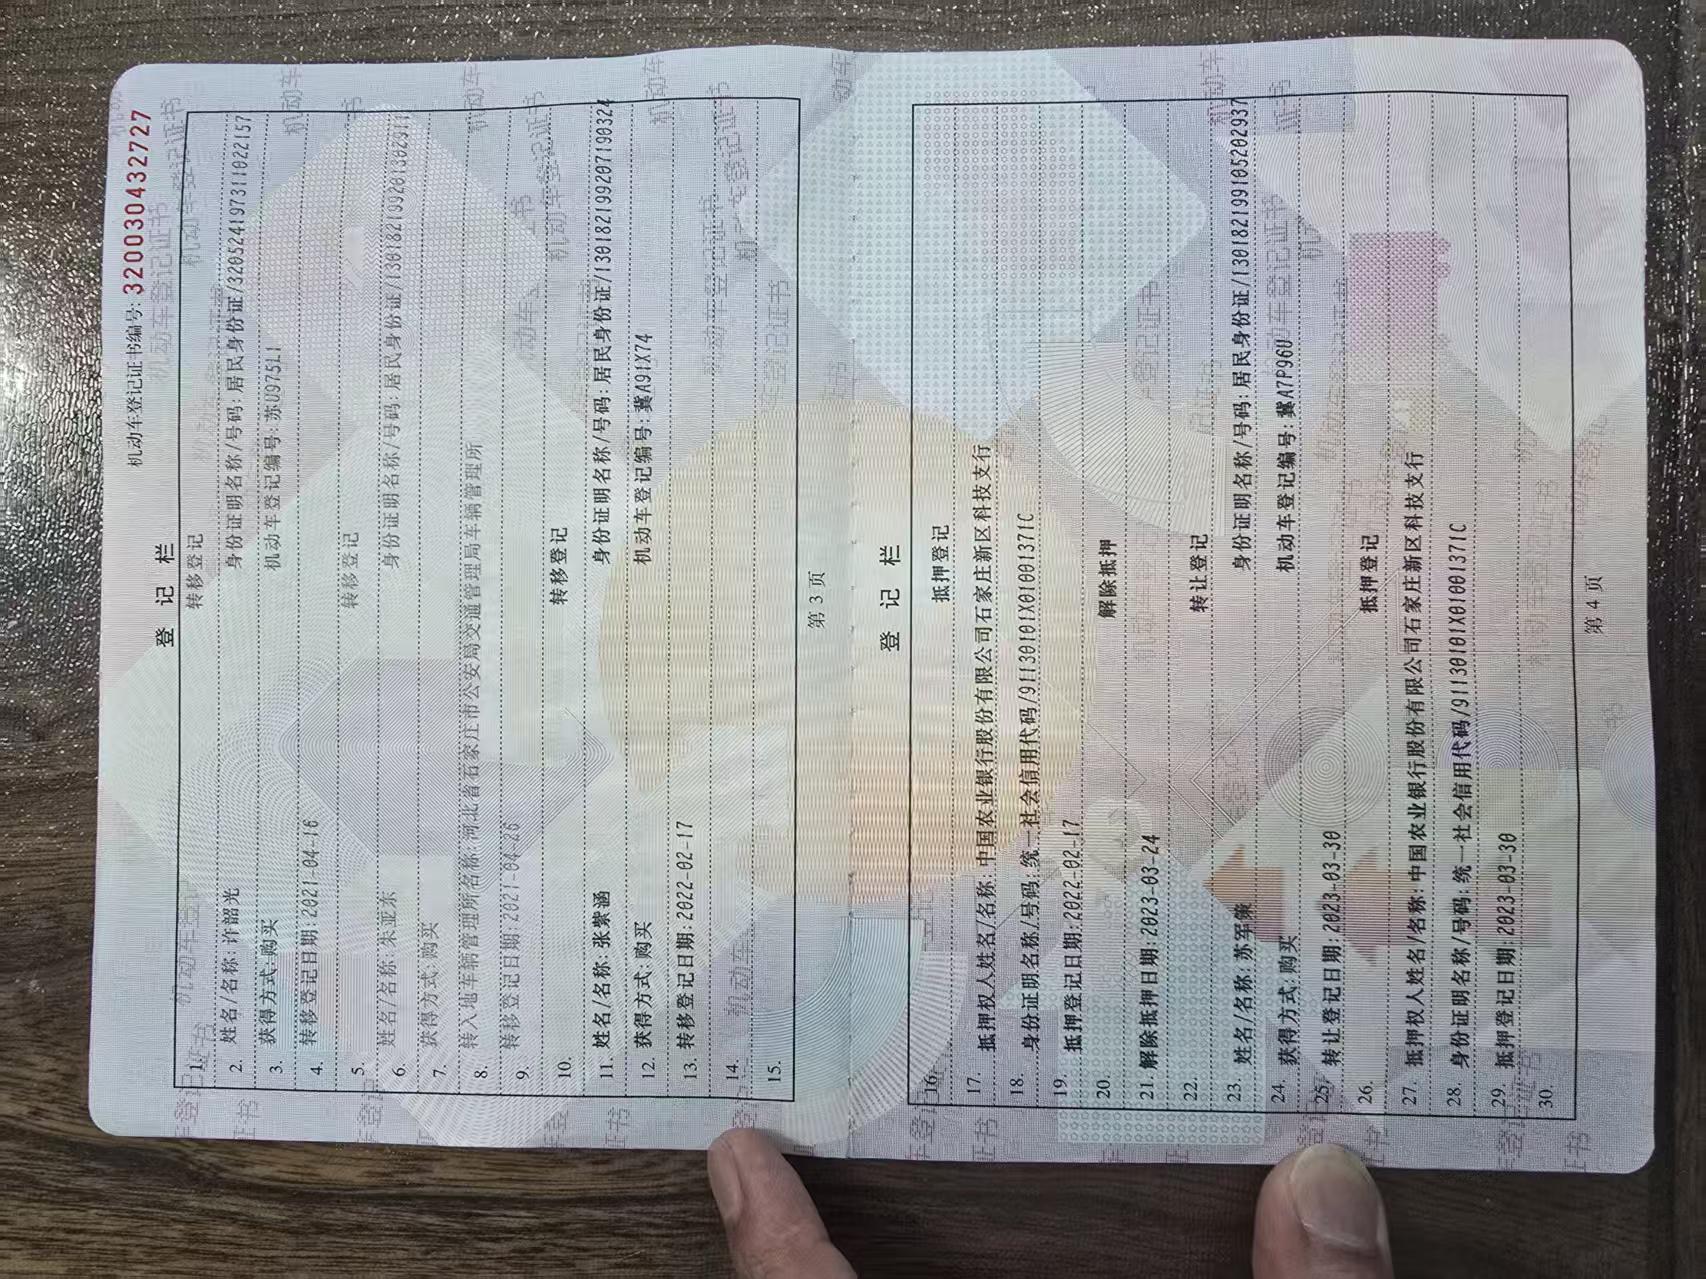 机动车登记证书编号: 320030432727
登 记 栏
1. 转移登记
2. 姓名/名称:许韶光 身份证明名称/号码:居民身份证/320524197311022157
3. 获得方式:购买 机动车登记编号:苏U975L1
4. 转移登记日期:2021-04-16
5. 转移登记
6. 姓名/名称:朱亚东 身份证明名称/号码:居民身份证/
7. 获得方式:购买
8. 转入地车辆管理所名称:河北省石家庄市公安局交通管理局车辆管理所
9. 转移登记日期:2021-04-26
10. 转移登记
11. 姓名/名称:张紫涵 身份证明名称/号码:居民身份证/130182199207190324
12. 获得方式:购买 机动车登记编号:冀A91X74
13. 转移登记日期:2022-02-17
14.
15.
第 3 页
登 记 栏
16. 抵押登记
17. 抵押权人姓名/名称:中国农业银行股份有限公司石家庄新区科技支行
18. 身份证明名称/号码:统一社会信用代码/91130101X01001371C
19. 抵押登记日期:2022-02-17
20 解除抵押
21. 解除抵押日期:2023-03-24
22. 转让登记
23. 姓名/名称:苏军策 身份证明名称/号码:居民身份证/130182199105202937
24. 获得方式:购买 机动车登记编号:冀A7P96U
25. 转让登记日期:2023-03-30
26. 抵押登记
27. 抵押权人姓名/名称:中国农业银行股份有限公司石家庄新区科技支行
28. 身份证明名称/号码:统一社会信用代码/91130101X01001371C
29. 抵押登记日期:2023-03-30
30.
第 4 页